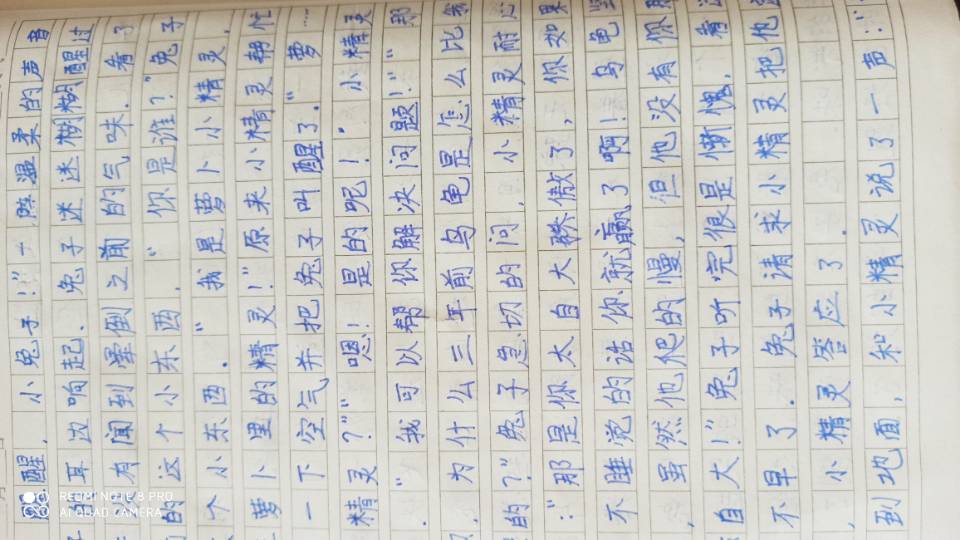 醒,小兔子!”一阵温柔的声音
耳边响起。兔子迷迷糊糊醒过
有闻到晕倒之前的气味。看了
的这个小东西,“你是谁?”兔子
个小东西。”我是萝卜小精灵,
萝卜里的精灵!”原来小精灵帮忙
一下空气并把兔子叫醒了。”萝
精灵?”“嗯!是的呢!”小精灵
。“我可以帮你解决问题!”“那
为什么三年前乌龟是怎么比
的?”兔子急切的问,小精灵耐
:“那是你太自大骄傲了,你如果
不睡觉的话你就赢了啊!乌龟
,虽然他爬的慢,但他没有你
自大!”兔子听完很是惭愧,看
不早了。兔子请求小精灵把他
,小精灵答应了。
到地面,和小精灵说了一声:“
REDMI NOTE 8 PRO
AI QUAD CAMERA